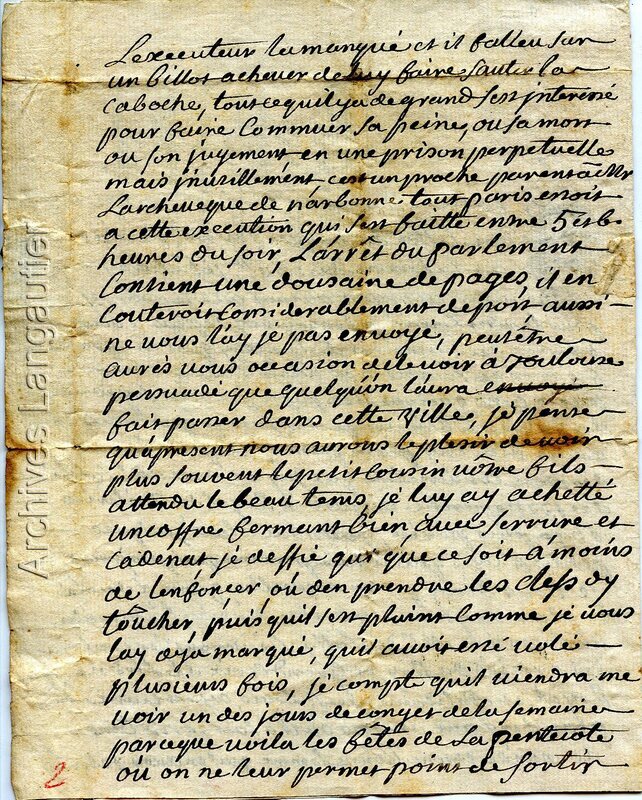 L'executeur la manqué et il falleu sur
un billot achever de luy faire sauter la
caboche, tout ce quil ya de grand sest interessé
pour faire Commuer sa peine, ou sa mort
ou son jugement en une prison perpetuelle
mais inutillement, cest un proche parent a Mr
Larcheveque de narbonne tout paris etoit
a cette execution qui sest faitte entre 5 et 6
heures du soir, L'arrêt du parlement
Contient une dousaine de pages, il en
couteroit Considerablement de port aussi
ne vous l'ay je pas envoyé, peutêtre
aurés vous occasion de le voir à Toulouse
persuadé que quelqu'un l'aura envoyé
fait passer dans cette ville, je pense
qu'apresent nous aurons le plesir de voir
plus souvent le petit Cousin vôtre fils
attendu le beau tems, je luy ay achetté
un coffre fermant bien avec serrure et
Cadenat je deffie qui que ce soit à moins
de l'enfoncer ou d'en prendre les clefs dy
toucher, puis quil sest plaint Comme je vous
lay deja marqué, quil avoit esté volé
plusieurs fois, je compte quil viendra me
voir un des jours de conget de la semaine
parceque voila les fêtes de La pentecote
où on ne leur permet point de sortir
2
Archives Langautier